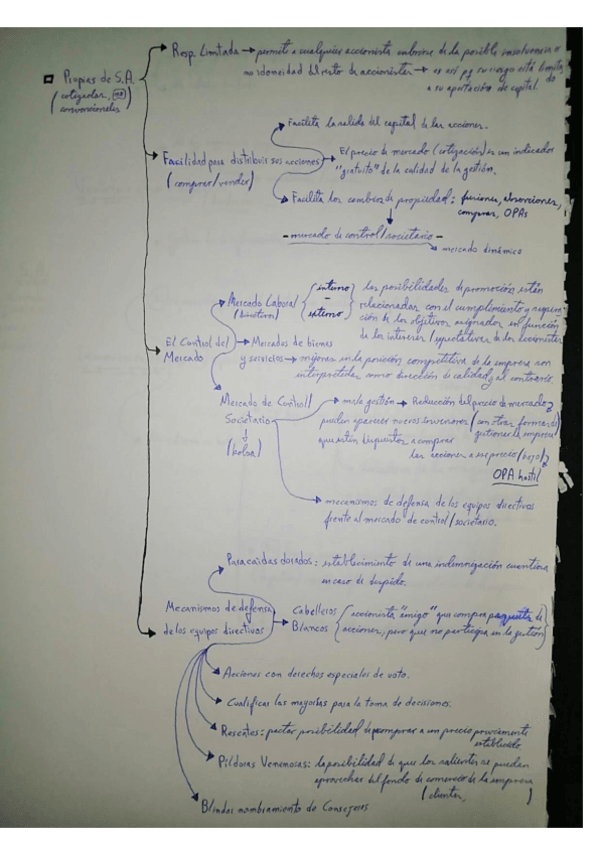 Propias de S.A.
(cotizadas, no
convencionales)
Resp. Limitada → permite a cualquier accionista cubrirse de la posible insolvencia o
no idoneidad del resto de accionistas → es así pq su riesgo está limita
do
a su aportación de capital.
Facilidad para distribuir sus acciones
(comprar/vender)
Facilita la salida del capital de las acciones.
El precio de mercado (cotización) es un indicador
"gratuito" de la calidad de la gestión.
Facilita los cambios de propiedad: fusiones, absorciones,
compras, OPAs
- mercado de control/societario -
mercado dinámico
El Control del
Mercado
Mercado Laboral
(directivos)
interno
-
externo
las posibilidades de promoción están
relacionadas con el cumplimiento y supera-
ción de los objetivos asignados en función
de los intereses/expectativas de los accionistas
Mercados de bienes
y servicios → mejoras en la posición competitiva de la empresa son
interpretadas como dirección de calidad y al contrario.
Mercado de Control/
Societario
↓
(bolsa)
mala gestión → Reducción del precio de mercado
pueden aparecer nuevos inversores (con otras formas de
gestionar la empresa)
que están dispuestos a comprar
las acciones a ese precio (bajo)
OPA hostil
mecanismos de defensa de los equipos directivos
frente al mercado de control/societario.
Mecanismos de defensa
de los equipos directivos
Paracaídas dorados: establecimiento de una indemnización cuantiosa
en caso de despido.
Caballeros
Blancos
accionista "amigo" que compra paquetes de
acciones, pero que no participa en la gestión
Acciones con derechos especiales de voto.
Cualificar las mayorías para la toma de decisiones.
Rescates: pactar posibilidad de recomprar a un precio previamente
establecido
Píldoras Venenosas: la posibilidad de que los salientes se puedan
aprovechar del fondo de comercio de la empresa
(clientes, )
Blindar nombramiento de Consejeros